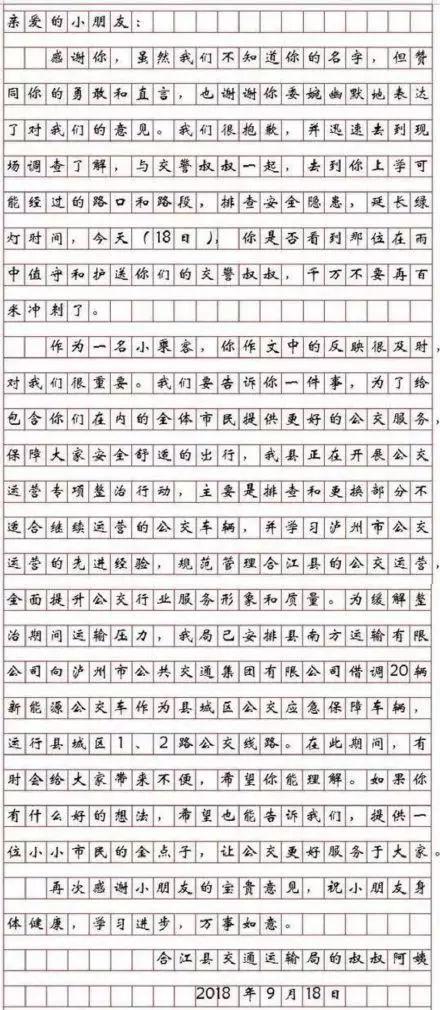 亲爱的小朋友：
感谢你，虽然我们不知道你的名字，但赞
同你的勇敢和直言，也谢谢你委婉幽默地表达
了对我们的意见。我们很抱歉，并迅速去到现
场调查了解，与交警叔叔一起，去到你上学可
能经过的路口和路段，排查安全隐患，延长绿
灯时间，今天（18日），你是否看到那位在雨
中值守和护送你们的交警叔叔，千万不要再百
米冲刺了。
作为一名小乘客，你作文中的反映很及时，
对我们很重要。我们要告诉你一件事，为了给
包含你们在内的全体市民提供更好的公交服务，
保障大家安全舒适的出行，我县正在开展公交
运营专项整治行动，主要是排查和更换部分不
适合继续运营的公交车辆，并学习泸州市公交
运营的先进经验，规范管理合江县的公交运营，
全面提升公交行业服务形象和质量。为缓解整
治期间运输压力，我局已安排县南方运输有限
公司向泸州市公共交通集团有限公司借调20辆
新能源公交车作为县城区公交应急保障车辆，
运行县城区1、2路公交线路。在此期间，有
时会给大家带来不便，希望你能理解。如果你
有什么好的想法，希望也能告诉我们，提供一
位小小市民的金点子，让公交更好服务于大家。
再次感谢小朋友的宝贵意见，祝小朋友身
体健康，学习进步，万事如意。
合江县交通运输局的叔叔阿姨
2018年9月18日